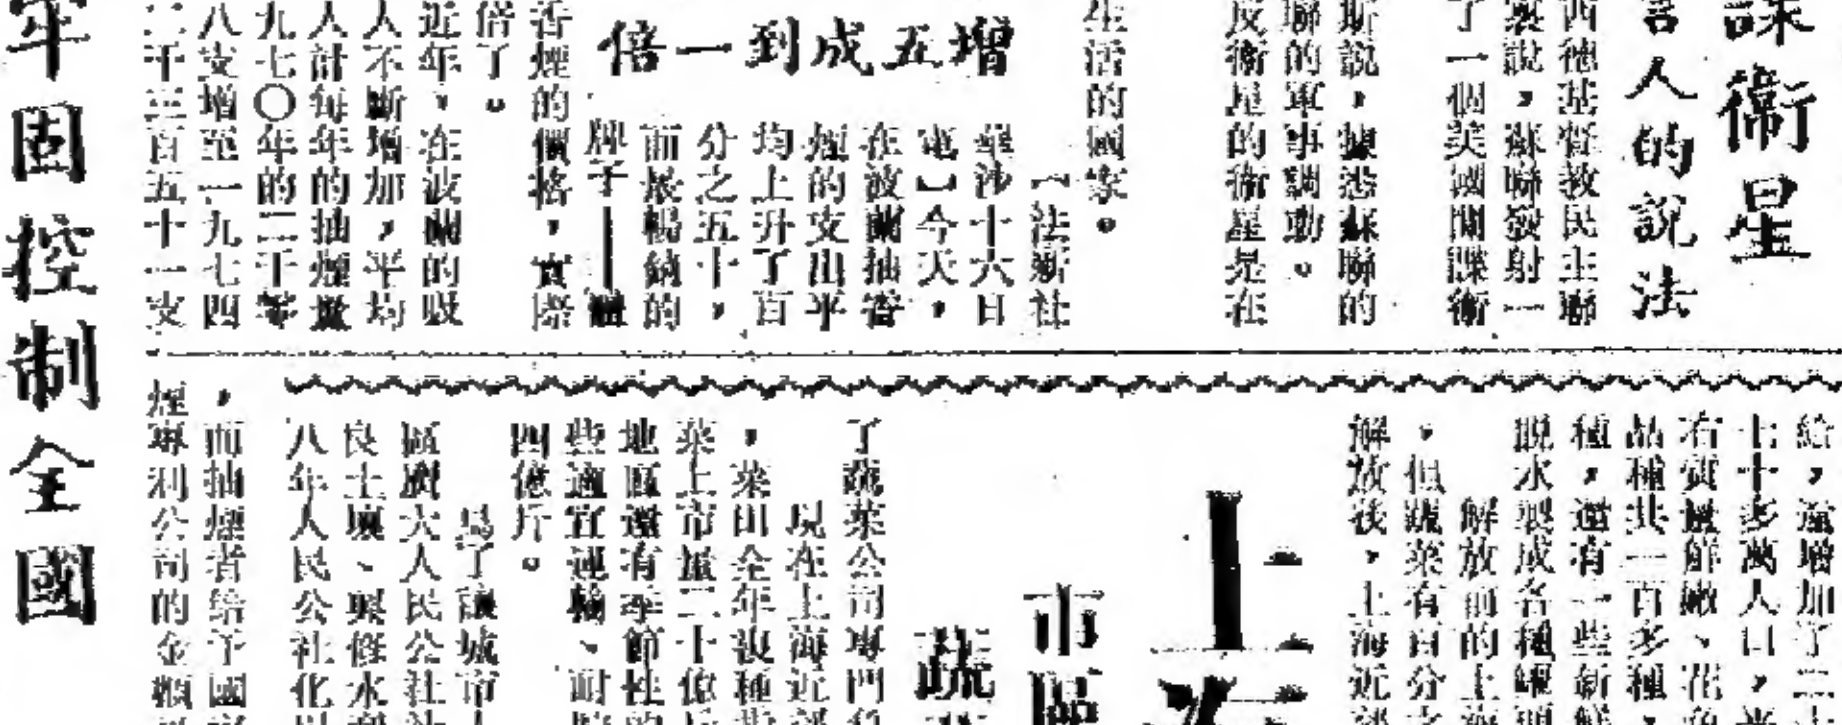 諜衞星
言人的說法
西德基督教民主聯
裏說，蘇聯發射一
了一個美國間諜衞
斯說，據悉蘇聯的
聯的軍事調動。
反衞星的衞星是在
生活的國家。
增五成到一倍
〔法新社
華沙十六日
電〕今天，
在波蘭抽香
煙的支出平
均上升了百
分之五十，
而最暢銷的
牌子——
香煙的價格，實際
倍了。
近年，在波蘭的吸
人不斷增加，平均
人計每年的抽煙數
九七〇年的二千零
八支增至一九七四
二千三百五十一支
牢固控制全國
給，還增加了二
七十多萬人口，
右質量鮮嫩、花
品種共一百多種
種，還有一些新鮮
脫水製成各種罐頭
解放前的上海
，但蔬菜有百分
解放後，上海近郊
上
市區
蔬
了蔬菜公司專門
現在上海近郊
，菜田全年復種
菜上市量二十億
地區還有季節性的
些適宜運輸、耐
四億斤。
爲了讓城市人
區廣大人民公社社
良土壤、興修水利
八年人民公社化以
，而抽煙者給予國家
煙專利公司的金額